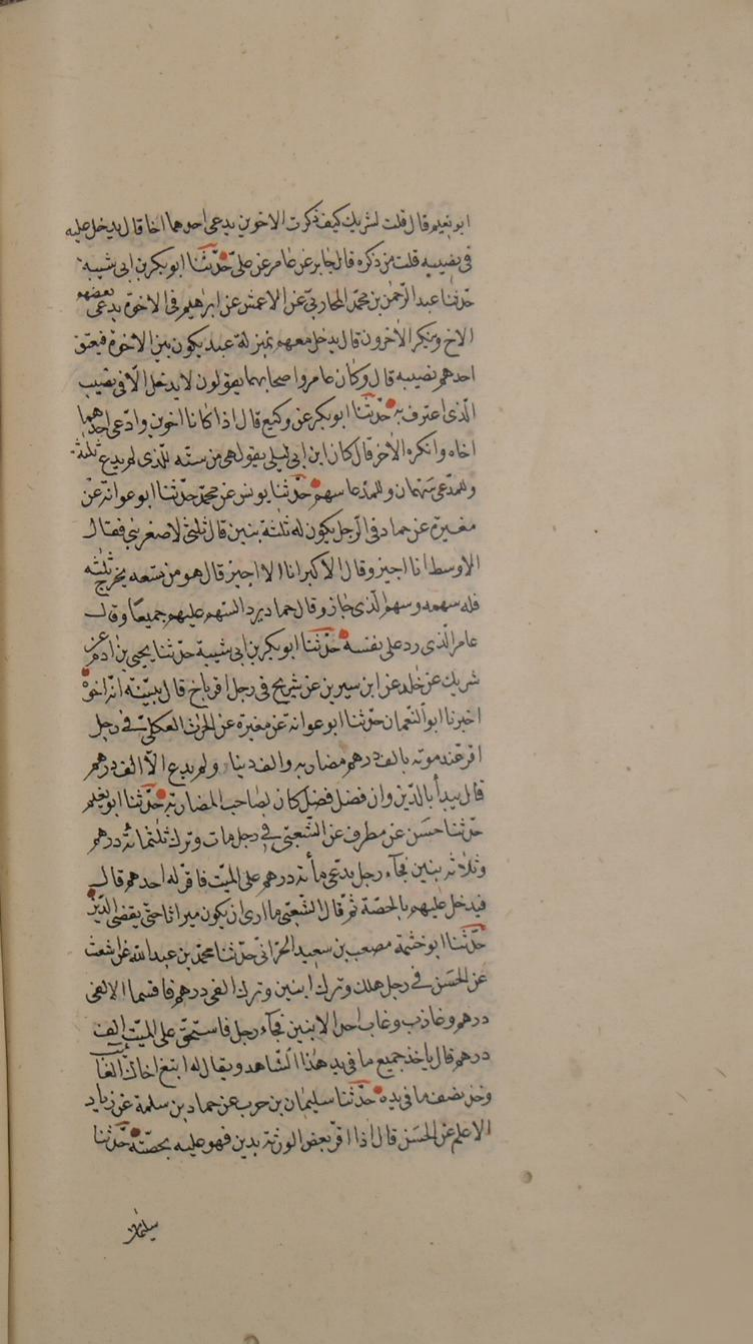 ابو نعيم قال قلت لشريك كيف ذكرت الاخوين يدعى احدهما اخا قال يدخل عليه
في نصيبه قلت من ذكره قال جابر عن عامر عن علي حدثنا ابو بكر بن ابى شيبة
حدثنا عبد الرحمن بن محمد المحاربي عن الاعمش عن ابرهيم فى الاخوة يدعى بعضهم
الاخ وينكر الاخرون قال يدخل معهم بمنزلة عبد يكون بين الاخوة فيعتق
احدهم نصيبه قال وكان عامر واصحابهما يقولون لا يدخل الا فى نصيب
الذى اعترف به حدثنا ابو بكر عن وكيع قال اذا كانا اخوين وادعى احدهما
اخاه وانكره الاخر قال كان ابن ابى ليلى يقول هى من ستة للذى لم يدع ثلثة
وللمدعى سهمان وللمدعا سهم حدثنا يونس عن محمد حدثنا ابو عوانة عن
مغيرة عن حماد فى الرجل يكون له ثلثة بنين قال ثلثى لاصغر بنى فقال
الاوسط انا اجيز وقال الاكبر انا لا اجيز قال هو من تسعه يخرج ثلثه
فله سهمه وسهم الذى جاز وقال حماد يرد السهم عليهم جميعا وقال
عامر الذى رد على نفسه حدثنا ابو بكر بن ابى شيبة حدثنا يحيى بن ادم عن
شريك عن خلد عن ابن سيرين عن شريح فى رجل اقر باخ قال بينته انه اخوه
اخبرنا ابو النعمان حدثنا ابو عوانة عن مغيرة عن الحرث العكلى فى رجل
اقر عند موته بالف درهم مضاربه والف دينا ولم يدع الا الف درهم
قال يبدأ بالدين وان فضل فضل كان لصاحب المضاربة حدثنا ابو نعيم
حدثنا حسن عن مطرف عن الشعبى فى رجل مات وترك ثلثمائة درهم
وثلاثه بنين فجآء رجل يدعى مأئة درهم على الميت فاقر له احدهم قال
فيدخل عليهم بالحصة ثم قال الشعبى ما ارى ان يكون ميراثا حتى يقضى الدين
حدثنا ابو خثمة مصعب بن سعيد الحرانى حدثنا محمد بن عبد الله عن اشعث
عن الحسن فى رجل هلك وترك ابنين وترك الفى درهم فاقتسما الالفى
درهم وغاب احد الابنين فجآء رجل فاستحق على الميت الف
درهم قال ياخذ جميع ما فى يد هذا الشاهد ويقال له ابتغ اخاك الغائب
وخذ نصف ما فى يده حدثنا سليمان بن حرب عن حماد بن سلمة عن زياد
الاعلم عن الحسن قال اذا اقر بعض الورثة بدين فهو عليه بحصته حدثنا
سليمان